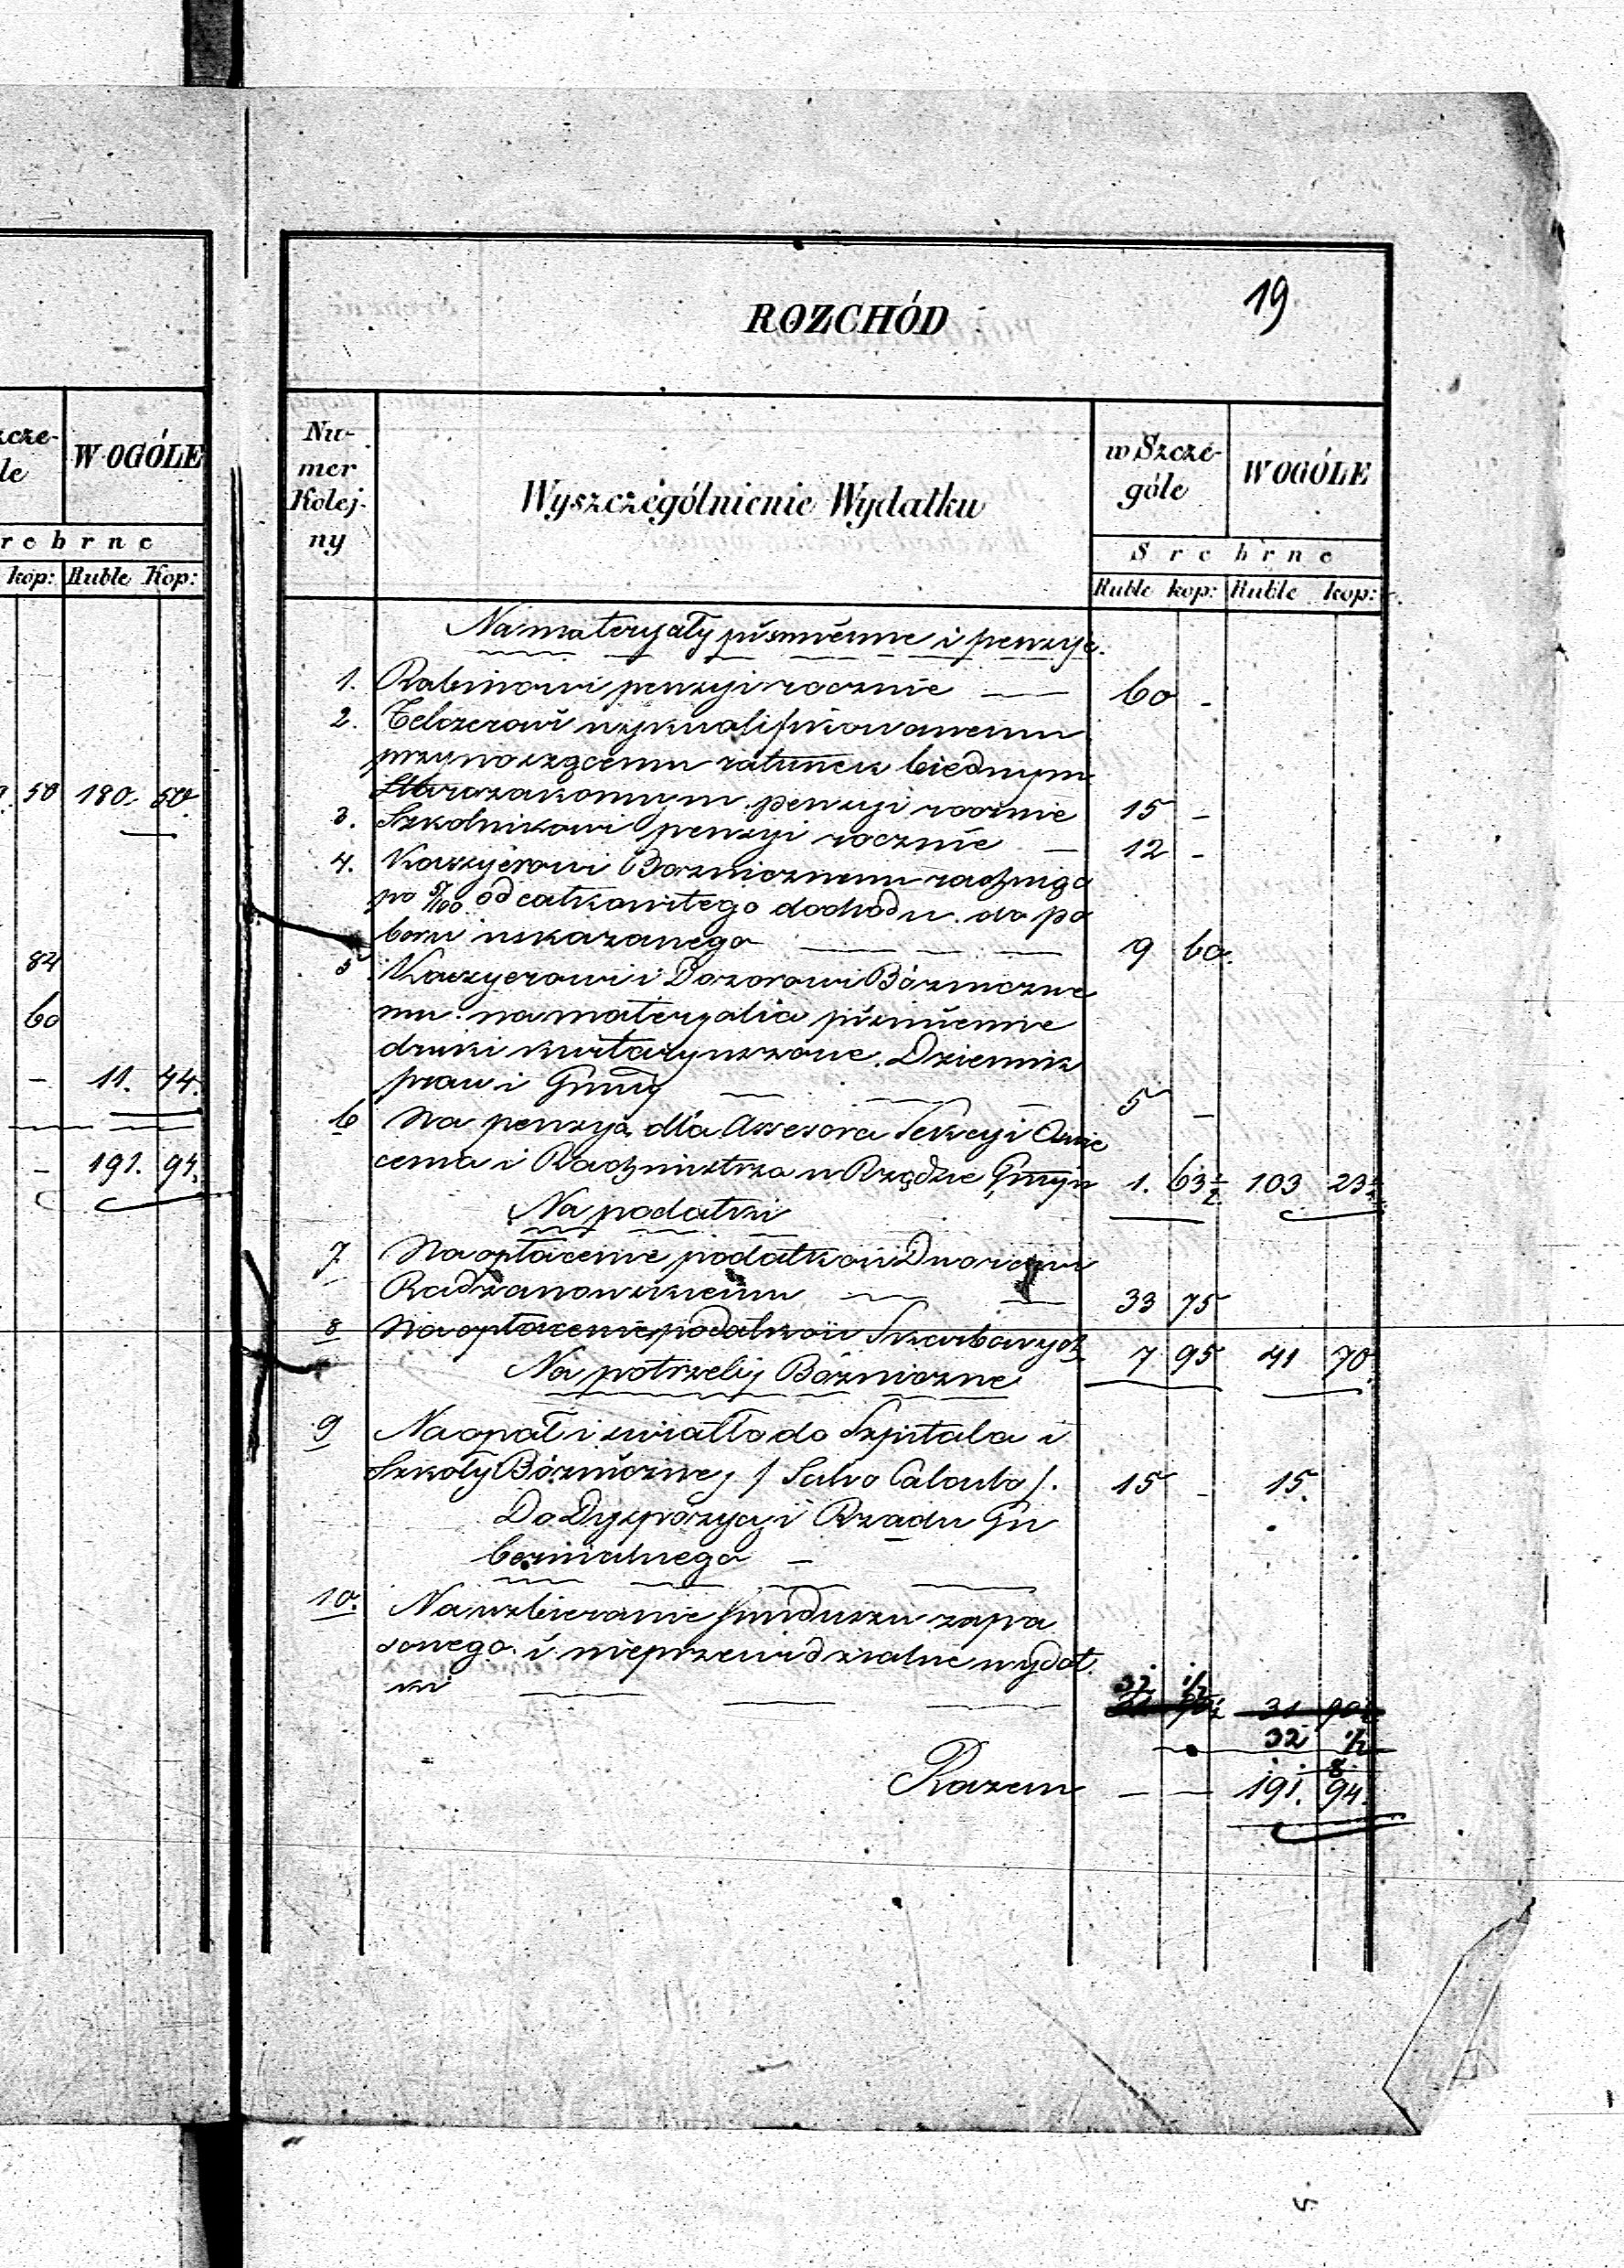 zcze-
le
W OGÓLE
rebrne
kop: Ruble Kop:
50 180. 50.
84
60
– 11. 44.
– 191. 94.
19
ROZCHÓD
Nu-
mer
Kolej-
ny
Wyszczególnienie Wydatku
w Szcze-
góle
W OGÓLE
Srebrne
Ruble kop: Ruble kop:
Na materyały piśmienne i penzye.
1. Rabinowi penzyi rocznie — 60 -
2. Felczerowi wykwalifikowanemu
przynoszącemu ratunek biednym
Starozakonnym penzyi rocznie 15 –
3. Szkolnikowi penzyi rocznie — 12 -
4. Kassyerowi Bożnicznemu
po 5/100 od całkowitego dochodu do po
boru wskazanego — — — 9 60.
5. Kassyerowi i Dozorowi Bóżniczne
mu na materyalia piśmienne
druki kwitaryuszowe. Dziennik
praw i Gminy — — — 5 –
6 Na penzyą dla Assesora Sekcyi
i Rachmistrza w Rządzie 1. 63 1/2 103 23 1/2
Na podatki
7 Na opłacenie podatków Dworowi
Radzanowskiemu — — 33 75
8 Na opłacenie podatków Skarbowych 7 95 41 70.
Na potrzeby Bóżniczne
9 Na opał i światło do Szpitala i
Szkoły Bóżniczney / Salvo Calculo /. 15 – 15.
Do Dyspozycyi Rządu Gu
bernialnego –
10. Na uzbieranie funduszu zapa
sowego i nieprzewidzialne wydat
ki — — — 32 1/2
31 90 1/2
32 1/2
8
Razem — — 191. 94.
5